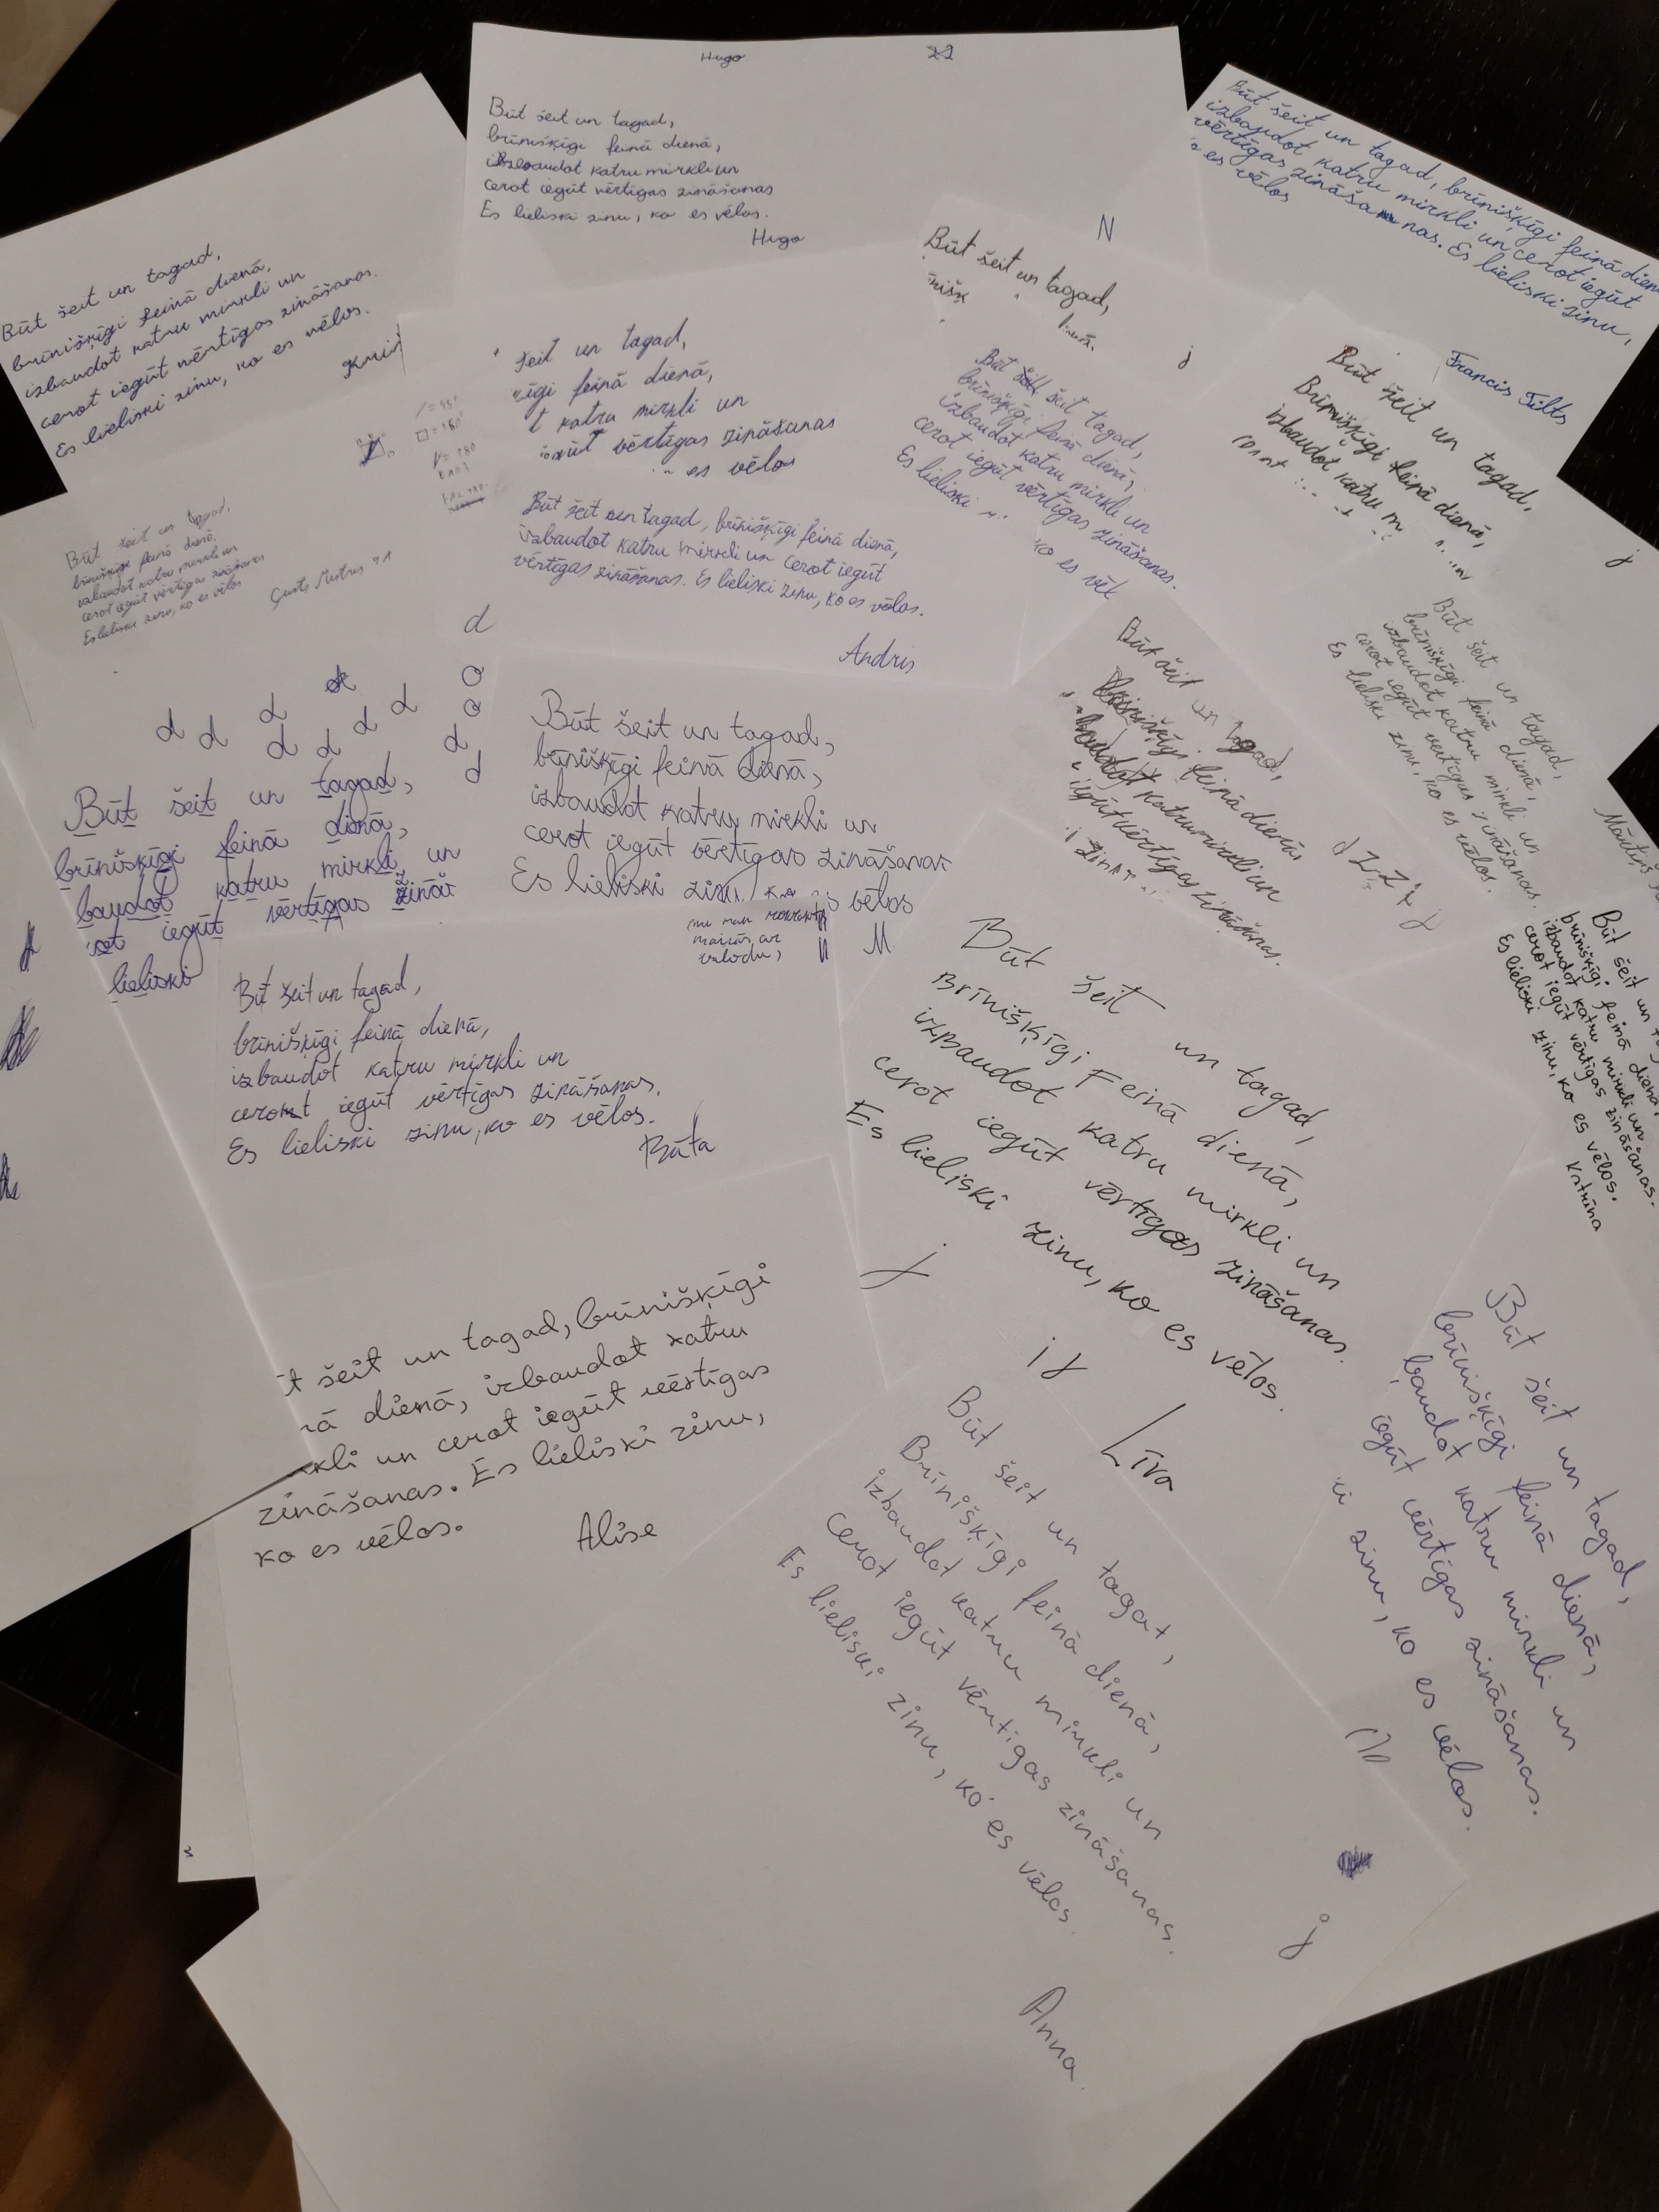 Hugo
Būt šeit un tagad,
brīnišķīgi feinā dienā,
izbaudot katru mirkli un
cerot iegūt vērtīgas zināšanas
Es lieliski zinu, ko es vēlos.
Hugo
Būt šeit un tagad, brīnišķīgi feinā
izbaudot katru mirkli un cerot iegūt
vērtīgas zināša nas. Es lieliski zinu,
es vēlos
Francis Tilts
Būt šeit un tagad,
brīnišķīgi feinā dienā,
izbaudot katru mirkli un
cerot iegūt vērtīgas zināšanas.
Es lieliski zinu, ko es vēlos.
N
Būt šeit un tagad,
j
šeit un tagad,
feinā dienā,
katru mirkli un
vērtīgas zināšanas
es vēlos
Būt šeit tagad,
brīnišķīgi feinā dienā,
izbaudot katru mirkli un
cerot iegūt vērtīgas zināšanas.
Es lieliski
ko es
Būt šeit un tagad,
Brīnišķīgi feinā dienā,
izbaudot katru
j
Būt šeit un tagad,
brīnišķīgi feinā dienā,
izbaudot katru mirkli un
cerot iegūt vērtīgas zināšanas
Es lieliski zinu, ko es vēlos
Būt šeit un tagad, brīnišķīgi feinā dienā,
izbaudot katru mirkli un cerot iegūt
vērtīgas zināšanas. Es lieliski zinu, ko es vēlos.
Andris
Būt šeit un tagad,
brīnišķīgi feinā dienā,
izbaudot katru mirkli un
cerot iegūt vērtīgas zināšanas.
Es lieliski zinu, ko es vēlos.
d
d d d d d d d d d
Būt šeit un tagad,
brīnišķīgi feinā dienā,
baudot katru mirkli un
iegūt vērtīgas
lieliski
Būt šeit un tagad,
brīnišķīgi feinā dienā,
izbaudot katru mirkli un
cerot iegūt vērtīgas zināšanas
Es lieliski vēlos
M
Būt šeit un tagad,
feinā dienā
katru mirkli un
iegūt vērtīgas zināšanas.
Būt šeit un
brīnišķīgi feinā dienā,
izbaudot katru mirkli un
cerot iegūt vērtīgas zināšanas.
Es lieliski zinu, ko es vēlos.
Katrīna
Būt šeit un tagad,
brīnišķīgi feinā dienā,
izbaudot katru mirkli un
cerot iegūt vērtīgas zināšanas.
Es lieliski zinu, ko es vēlos.
Būt šeit un tagad,
Brīnišķīgi Feinā dienā,
izbaudot katru mirkli un
cerot iegūt vērtīgas zināšanas.
Es lieliski zinu, ko es vēlos.
j
i j
Līva
šeit un tagad, brīnišķīgi
dienā, izbaudot katru
un cerot iegūt vērtīgas
zināšanas. Es lieliski zinu,
ko es vēlos.
Alise
Būt šeit un tagad,
brīnišķīgi feinā dienā,
baudot katru mirkli un
iegūt vērtīgas zināšanas.
zinu, ko es vēlos.
Būt šeit un tagat,
Brīnišķīgi feinā dienā,
izbaudot katru mirkli un
cerot iegūt vērtīgas zināšanas.
Es lieliski zinu, ko es vēlos.
j
Anna.